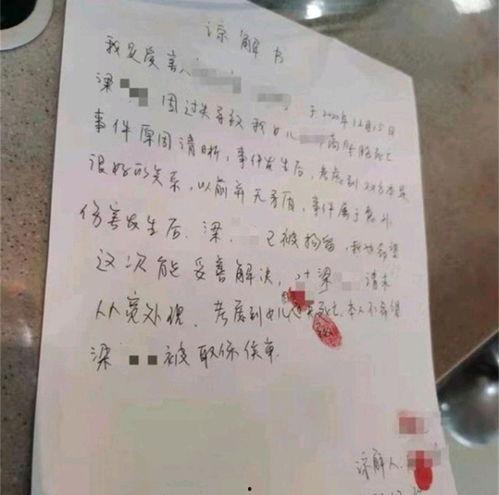 谅解书
我是受害人
梁 因过失导致我女儿 高坠致死 于2020年12月15日
事件原因清晰，事件发生后，考虑到双方是
很好的关系，以前并无矛盾，事件属于意外
伤害发生后，梁 已被拘留，我也希望
这次能妥善解决，对梁 请求
从宽处理，考虑到女儿 死亡，本人不希望
梁 被取保候审
谅解人